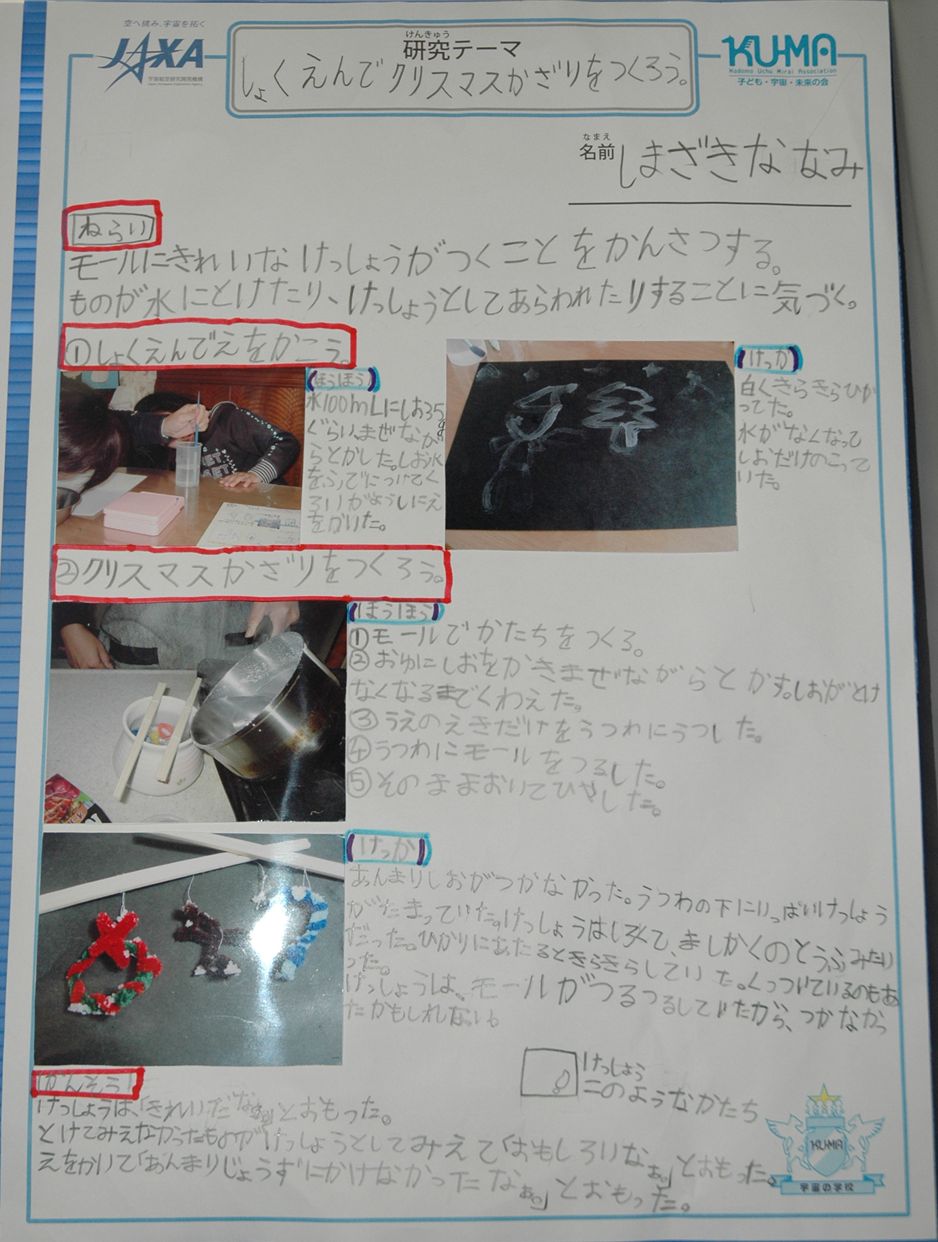 空へ挑み、宇宙を拓く
JAXA
宇宙航空研究開発機構
Japan Aerospace Exploration Agency
けんきゅう
研究テーマ
しょくえんでクリスマスかざりをつくろう。
KU-MA
Kodomo Uchu Mirai Association
子ども・宇宙・未来の会
なまえ
名前 しまざきななみ
ねらい
モールにきれいなけっしょうがつくことをかんさつする。
ものが水にとけたり、けっしょうとしてあらわれたりすることに気づく。
①しょくえんでえをかこう。
ほうほう
水100mLにしお35g
ぐらいまぜなが
らとかした。しお水
をふでにつけてく
ろいがようしにえ
をかいた。
けっか
白くきらきらひか
ってた。
水がなくなって
しおだけのこって
いた。
②クリスマスかざりをつくろう。
ほうほう
①モールでかたちをつくる。
②おゆにしおをかきまぜながらとかす。しおがとけ
なくなるまでくわえた。
③うえのえきだけをうつわにうつした。
④うつわにモールをつるした。
⑤そのままおいてひやした。
けっか
あんまりしおがつかなかった。うつわの下にいっぱいけっしょう
がたまっていた。けっしょうはしろくて、ましかくのとうふみたい
だった。ひかりにあたるときらきらしていた。くっついているのもあ
った。
けっしょうは、モールがつるつるしていたから、つかなかっ
たかもしれない。
けっしょう
このようなかたち
かんそう
けっしょうは、「きれいだなぁ。」とおもった。
とけてみえなかったものがけっしょうとしてみえて「おもしろいなぁ。」とおもった。
えをかいて「あんまりじょうずにかけなかったなぁ。」とおもった。
KU-MA
宇宙の学校